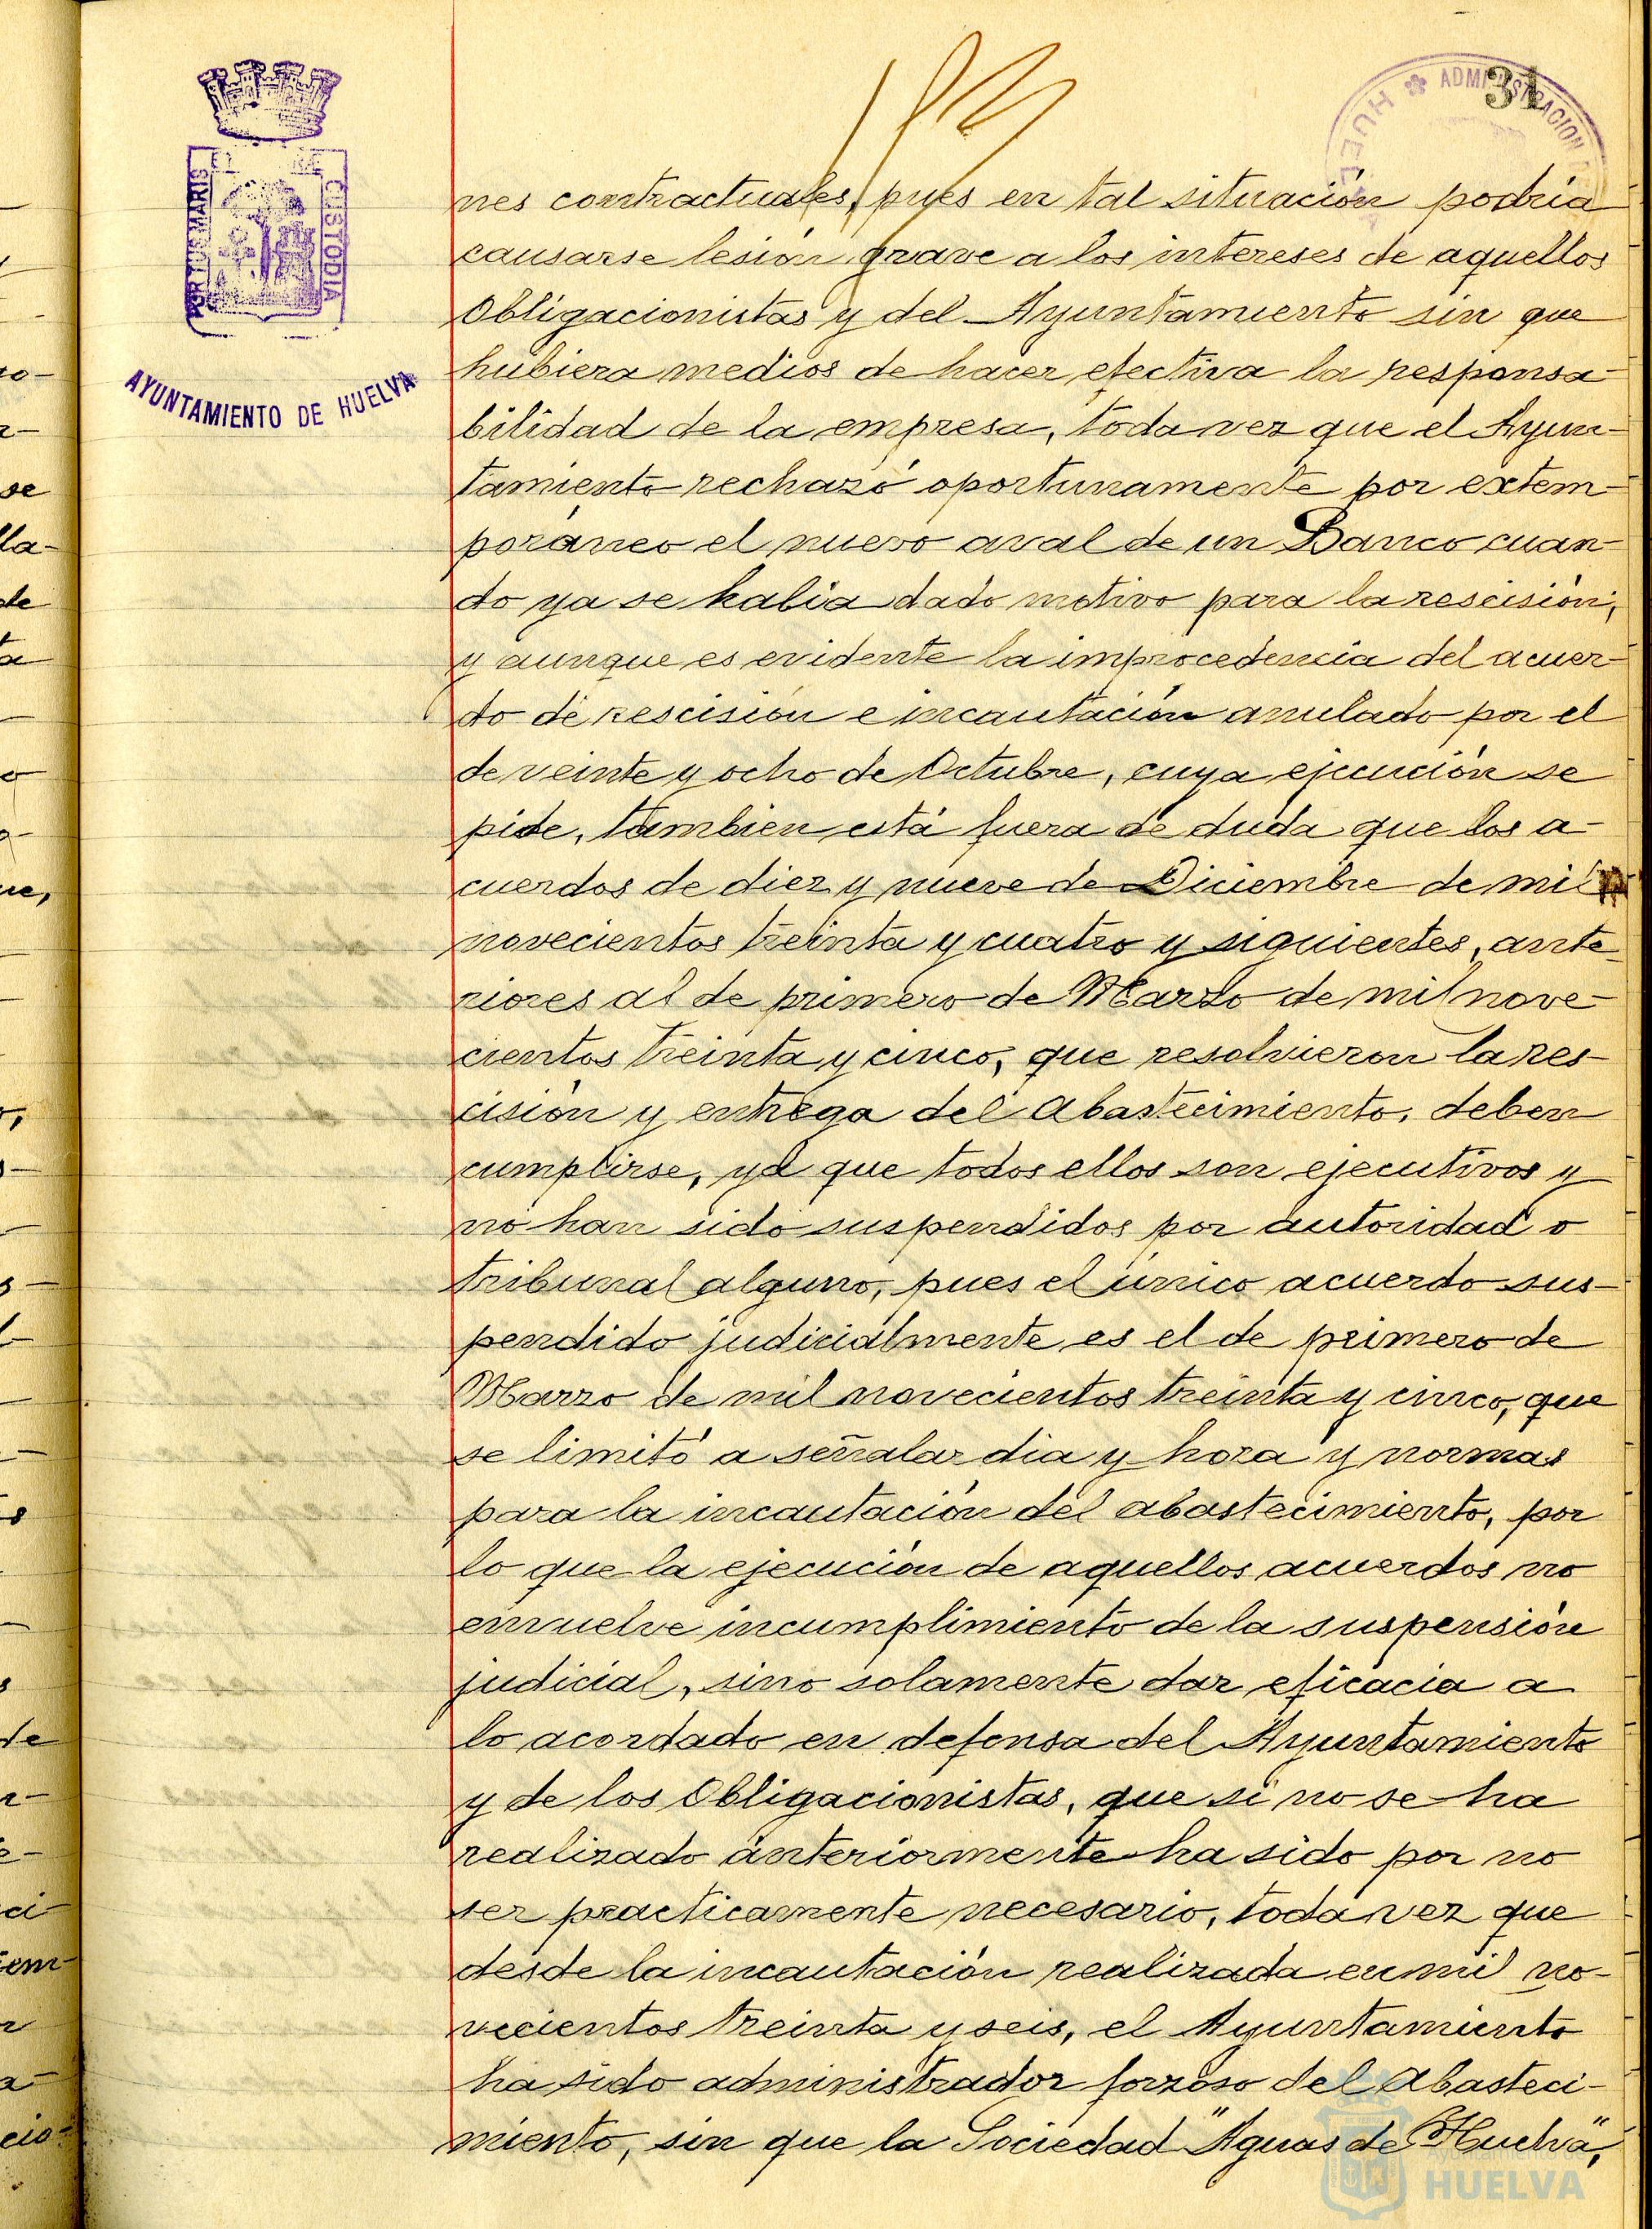 31
ADMINISTRACION
HUELVA
PORTUS MARIS
CUSTODIA
AYUNTAMIENTO DE HUELVA
nes contractuales, pues en tal situación podría
causarse lesión grave a los intereses de aquellos
Obligacionistas y del Ayuntamiento sin que
hubiera medios de hacer efectiva la responsa-
bilidad de la empresa, toda vez que el Ayun-
tamiento rechazó oportunamente por extem-
poráneo el nuevo aval de un Banco cuan-
do ya se habia dado motivo para la rescisión,
y aunque es evidente la improcedencia del acuer-
do de rescisión e incautación anulado por el
de veinte y ocho de Octubre, cuya ejecución se
pide, tambien está fuera de duda que los a-
cuerdos de diez y nueve de Diciembre de mil
novecientos treinta y cuatro y siguientes, ante-
riores al de primero de Marzo de mil nove-
cientos treinta y cinco, que resolvieron la res-
cisión y entrega del Abastecimiento, deben
cumplirse, ya que todos ellos son ejecutivos y
no han sido suspendidos por autoridad o
tribunal alguno, pues el único acuerdo sus-
pendido judicialmente es el de primero de
Marzo de mil novecientos treinta y cinco, que
se limitó a señalar dia y hora y normas
para la incautación del abastecimiento, por
lo que la ejecución de aquellos acuerdos no
envuelve incumplimiento de la suspensión
judicial, sino solamente dar eficacia a
lo acordado en defensa del Ayuntamiento
y de los Obligacionistas, que si no se ha
realizado anteriormente ha sido por no
ser practicamente necesario, toda vez que
desde la incautación realizada en mil no-
vecientos treinta y seis, el Ayuntamiento
ha sido administrador forzoso del Abasteci-
miento, sin que la Sociedad "Aguas de Huelva",
Ayuntamiento de
HUELVA